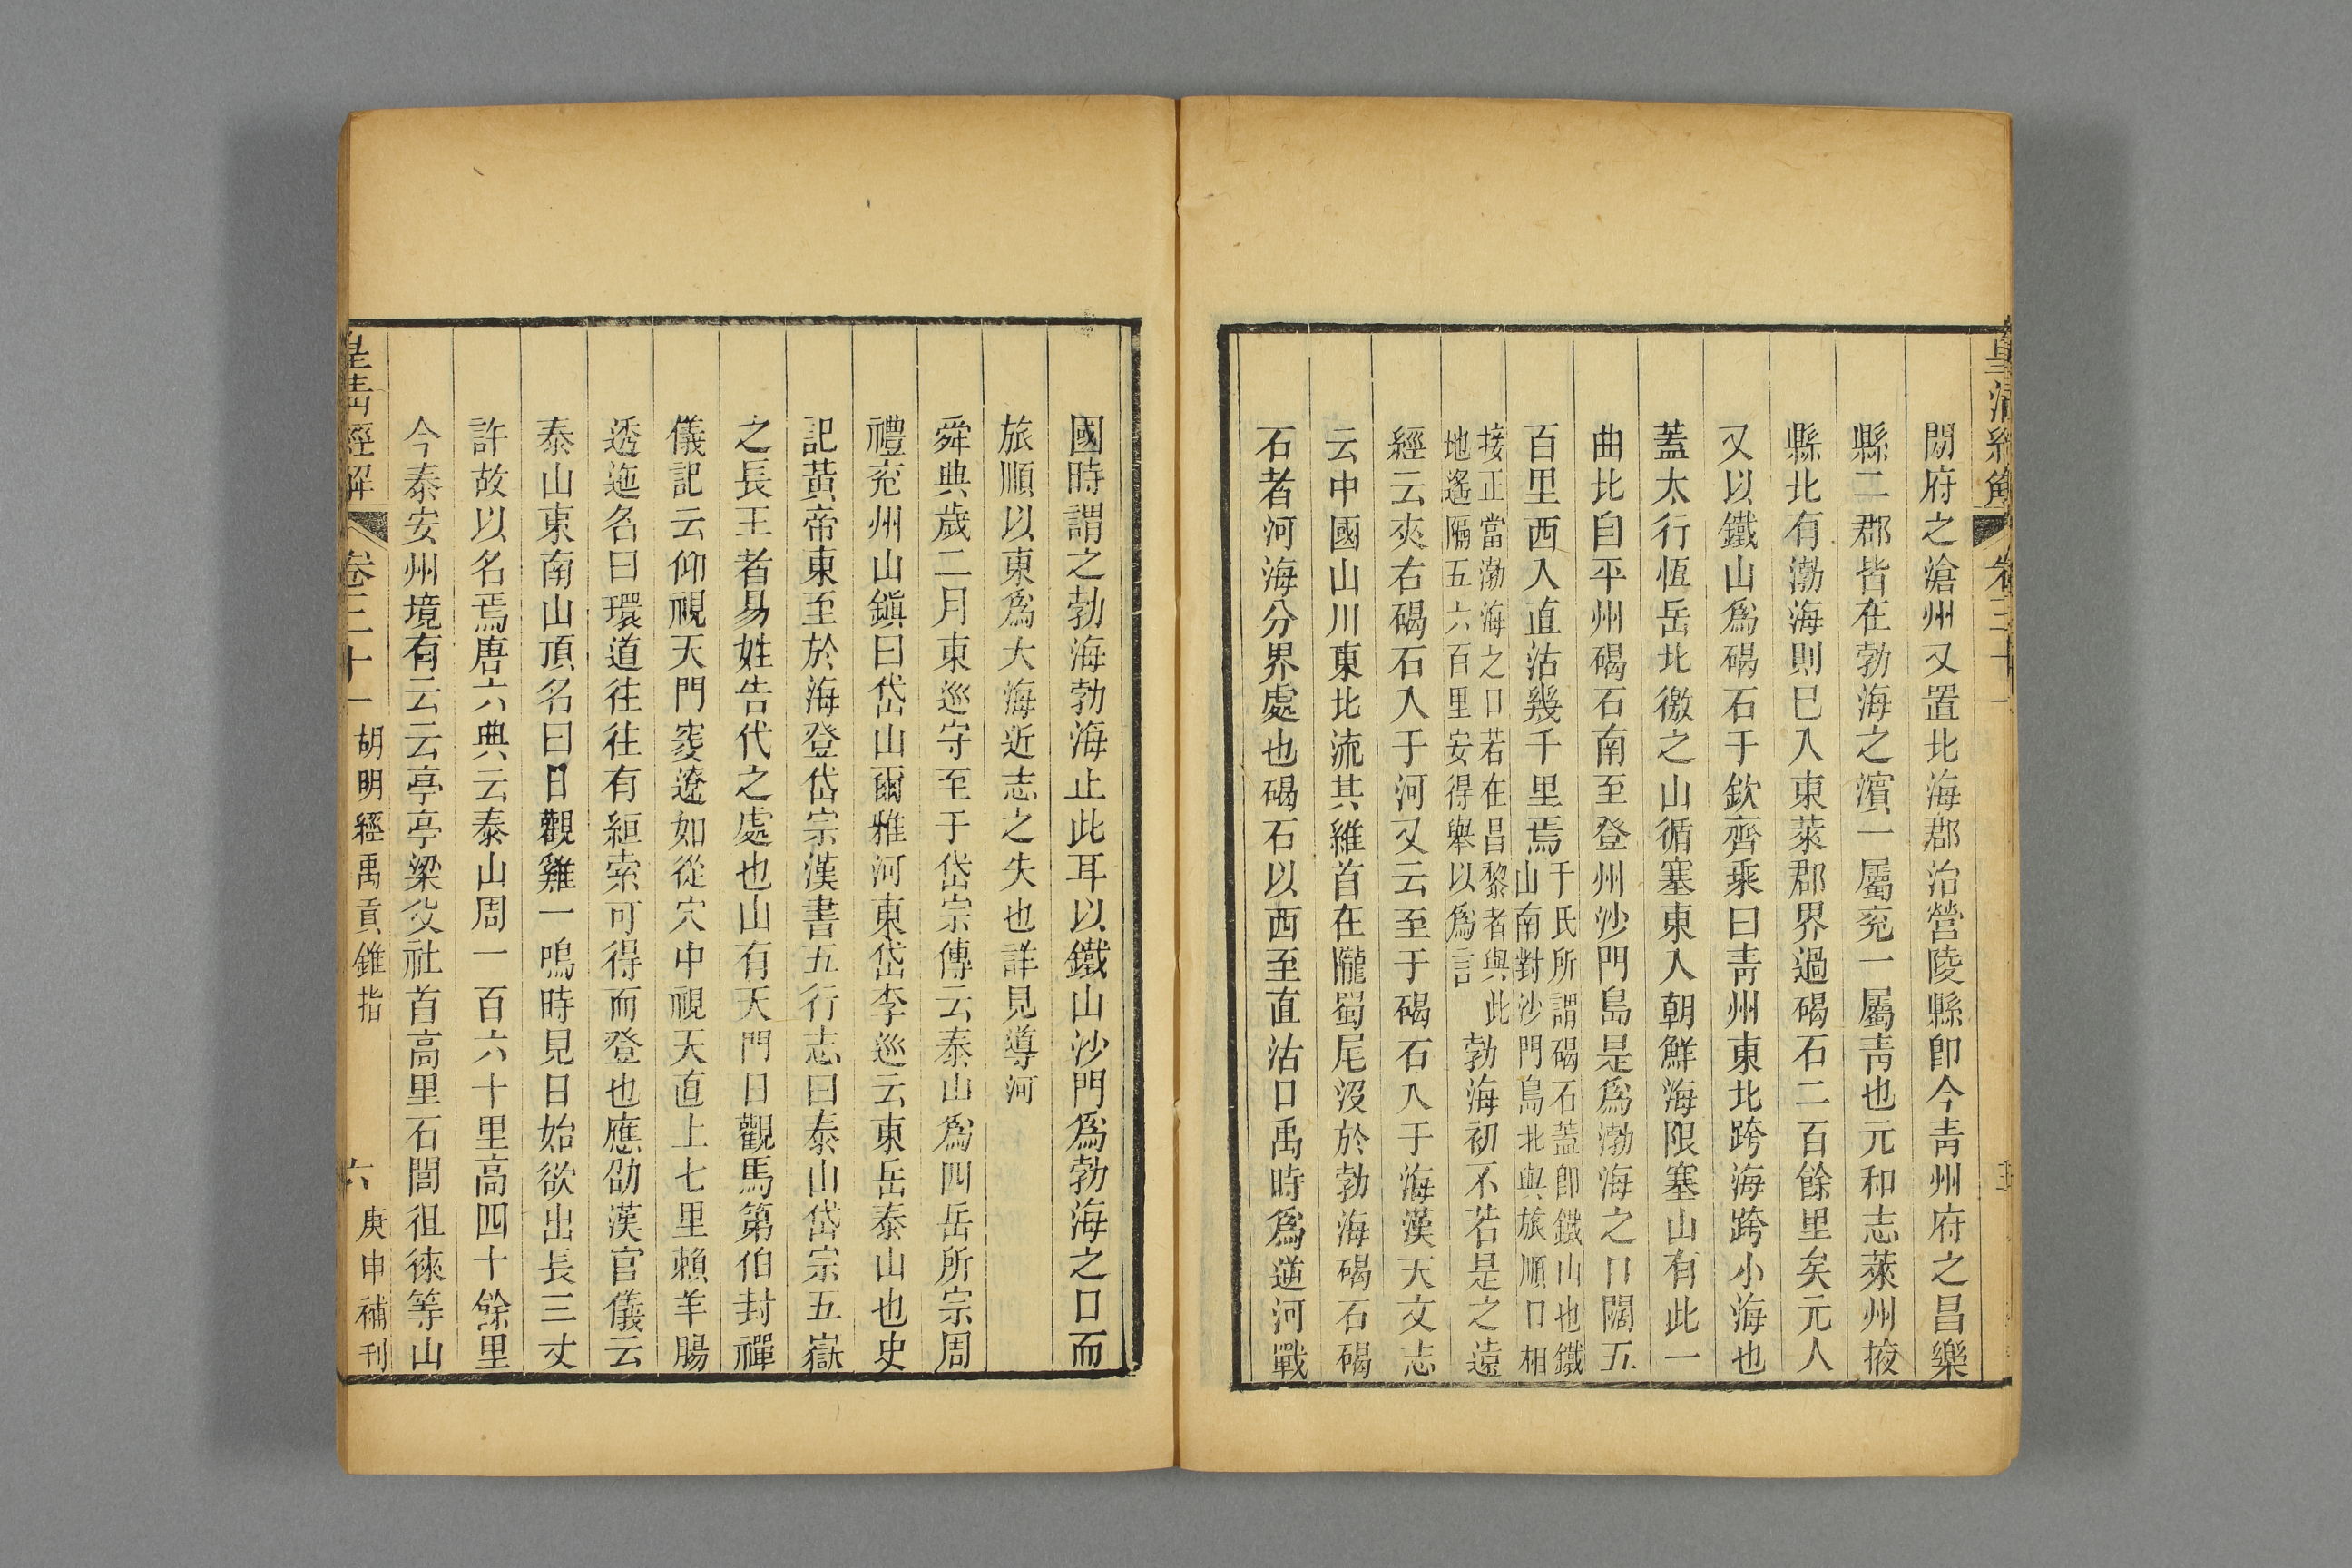 皇清經解 卷三十一
閒府之滄州又置北海郡治營陵縣卽今靑州府之昌樂
縣二郡皆在勃海之濱一屬兖一屬靑也元和志萊州掖
縣北有渤海則巳入東萊郡界過碣石二百餘里矣元人
又以鐵山爲碣石于欽齊乘曰靑州東北跨海跨小海也
蓋太行恆岳北徼之山循塞東入朝鮮海限塞山有此一
曲比自平州碣石南至登州沙門島是爲渤海之口闊五
百里西入直沽幾千里焉
于氏所謂碣石蓋卽鐵山也鐵
山南對沙門島北與旅順口相
接正當渤海之口若在昌黎者與此
地遙隔五六百里安得舉以爲言
勃海初不若是之遠
經云夾右碣石入于河又云至于碣石入于海漢天文志
云中國山川東北流其維首在隴蜀尾沒於勃海碣石碣
石者河海分界處也碣石以西至直沽口禹時爲逆河戰
國時謂之勃海勃海止此耳以鐵山沙門爲勃海之口而
旅順以東爲大海近志之失也詳見導河
舜典歲二月東巡守至于岱宗傳云泰山爲四岳所宗周
禮兖州山鎭曰岱山爾雅河東岱李巡云東岳泰山也史
記黃帝東至於海登岱宗漢書五行志曰泰山岱宗五嶽
之長王者易姓告代之處也山有天門日觀馬第伯封禪
儀記云仰視天門窔遼如從穴中視天直上七里賴羊腸
透迤名曰環道往往有絙索可得而登也應劭漢官儀云
泰山東南山頂名曰日觀雞一鳴時見日始欲出長三丈
許故以名焉唐六典云泰山周一百六十里高四十餘里
今泰安州境有云云亭亭梁父社首高里石閭徂徠等山
皇清經解 卷三十一 胡明經禹貢錐指 六 庚申補刊